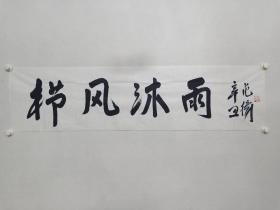 栉风沐雨
辛丑